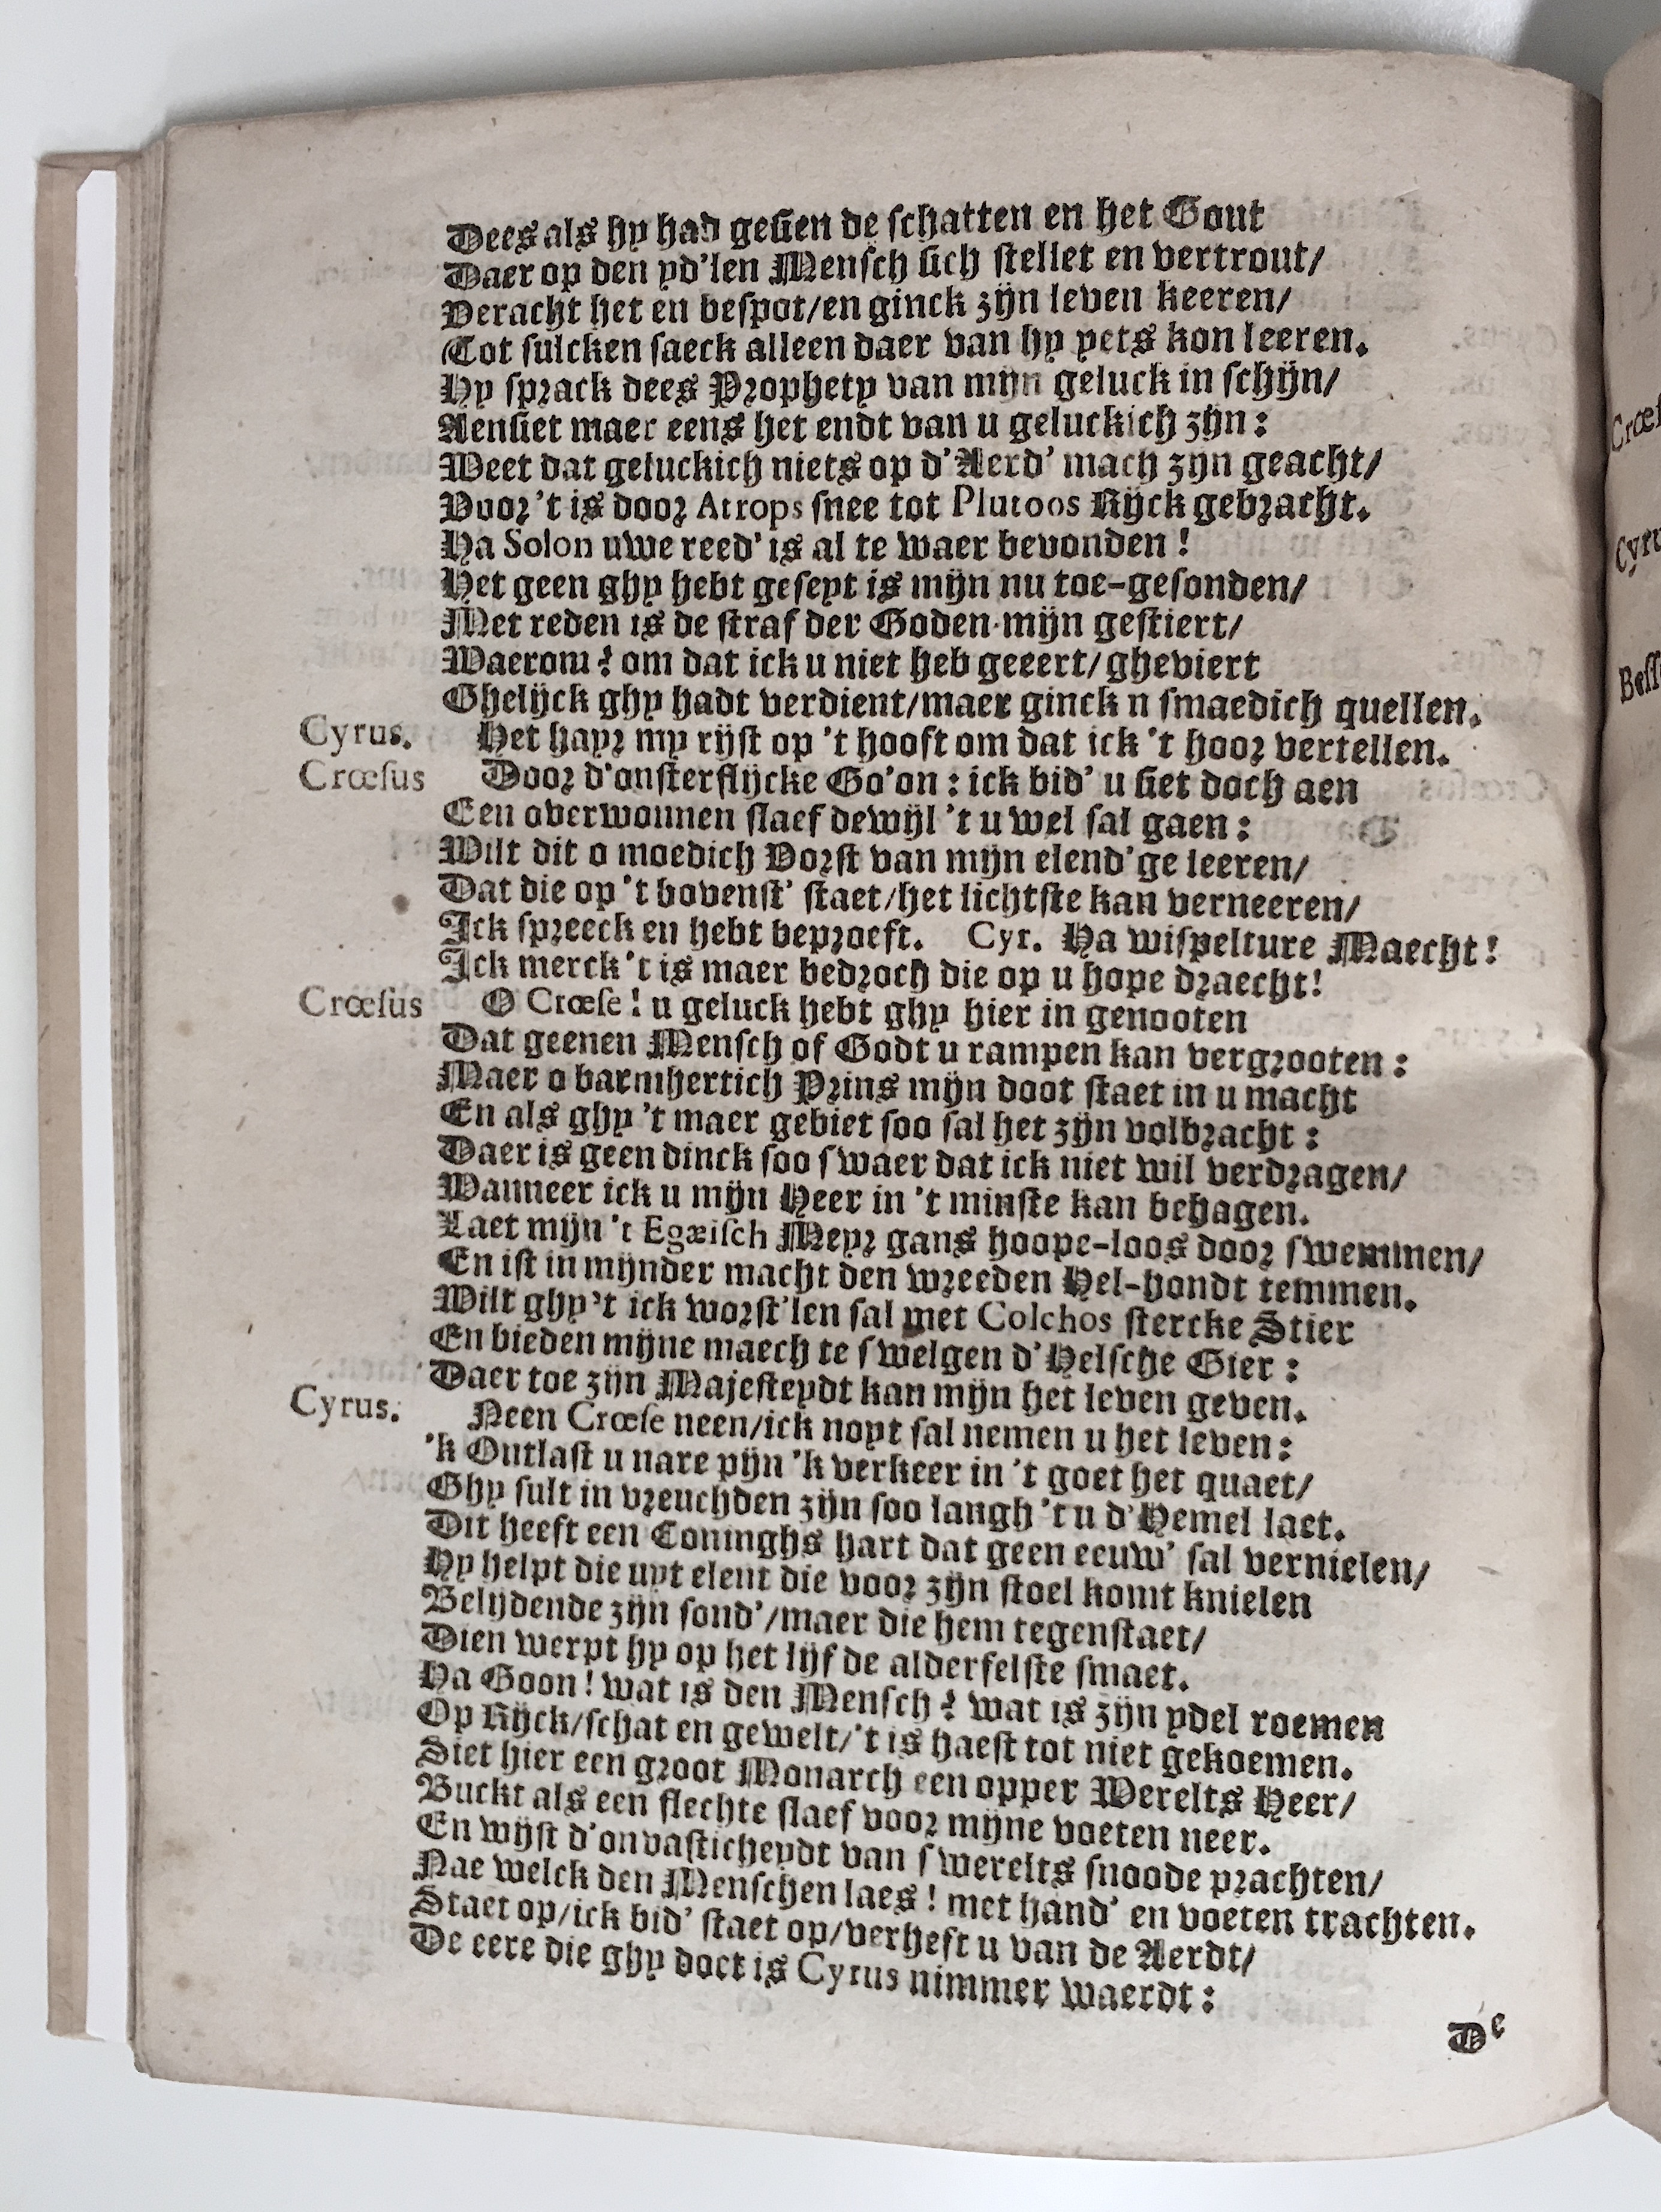 Dees als hy had gesien de schatten en het Gout
Daer op den yd'len Mensch sich stellet en vertrout/
Veracht het en bespot/en ginck zijn leven keeren/
Tot sulcken saeck alleen daer van hy yets kon leeren.
Hy sprack dees Prophety van mijn geluck in schijn/
Aensiet maer eens het endt van u geluckich zijn:
Weet dat geluckich niets op d'Aerd' mach zijn geacht/
Voor 't is door Atrops snee tot Plutoos Rijck gebracht.
Ha Solon uwe reed' is al te waer bevonden!
Het geen ghy hebt geseyt is mijn nu toe-gesonden/
Met reden is de straf der Goden mijn gestiert/
Waerom? om dat ick u niet heb geeert/gheviert
Ghelijck ghy hadt verdient/maer ginck n smaedich quellen.
Cyrus. Het hayr my rijst op 't hooft om dat ick 't hoor vertellen.
Crœsus Door d'onsterflijcke Go'on: ick bid' u siet doch aen
Een overwonnen slaef dewijl 't u wel sal gaen:
Wilt dit o moedich Vorst van mijn elend'ge leeren/
Dat die op 't bovenst' staet/het lichtste kan verneeren/
Ick spreeck en hebt beproeft. Cyr. Ha wispelture Maecht!
Ick merck 't is maer bedroch die op u hope draecht!
Crœsus O Crœse! u geluck hebt ghy hier in genooten
Dat geenen Mensch of Godt u rampen kan vergrooten:
Maer o barmhertich Prins mijn doot staet in u macht
En als ghy 't maer gebiet soo sal het zijn volbracht:
Daer is geen dinck soo swaer dat ick niet wil verdragen/
Wanneer ick u mijn Heer in 't minste kan behagen.
Laet mijn 't Egæisch Meyr gans hoope-loos door swemmen/
En ist in mijnder macht den wreeden Hel-hondt temmen.
Wilt ghy't ick worst'len sal met Colchos stercke Stier
En bieden mijne maech te swelgen d'Helsche Gier:
Daer toe zijn Majesteydt kan mijn het leven geven.
Cyrus. Neen Crœse neen/ick noyt sal nemen u het leven:
'k Ontlast u nare pijn 'k verkeer in 't goet het quaet/
Ghy sult in vreuchden zijn soo langh 't u d'Hemel laet.
Dit heeft een Coninghs hart dat geen eeuw' sal vernielen/
Hy helpt die uyt elent die voor zijn stoel komt knielen
Belijdende zijn sond'/maer die hem tegenstaet/
Dien werpt hy op het lijf de alderfelste smaet.
Ha Goon! wat is den Mensch? wat is zijn ydel roemen
Op Rijck/schat en gewelt/'t is haest tot niet gekoemen.
Siet hier een groot Monarch een opper Werelts Heer/
Buckt als een slechte slaef voor mijne voeten neer.
En wijst d'onvasticheydt van swerelts snoode prachten/
Nae welck den Menschen laes! met hand' en voeten trachten.
Staet op/ick bid' staet op/verheft u van de Aerdt/
De eere die ghy doet is Cyrus nimmer waerdt:
De